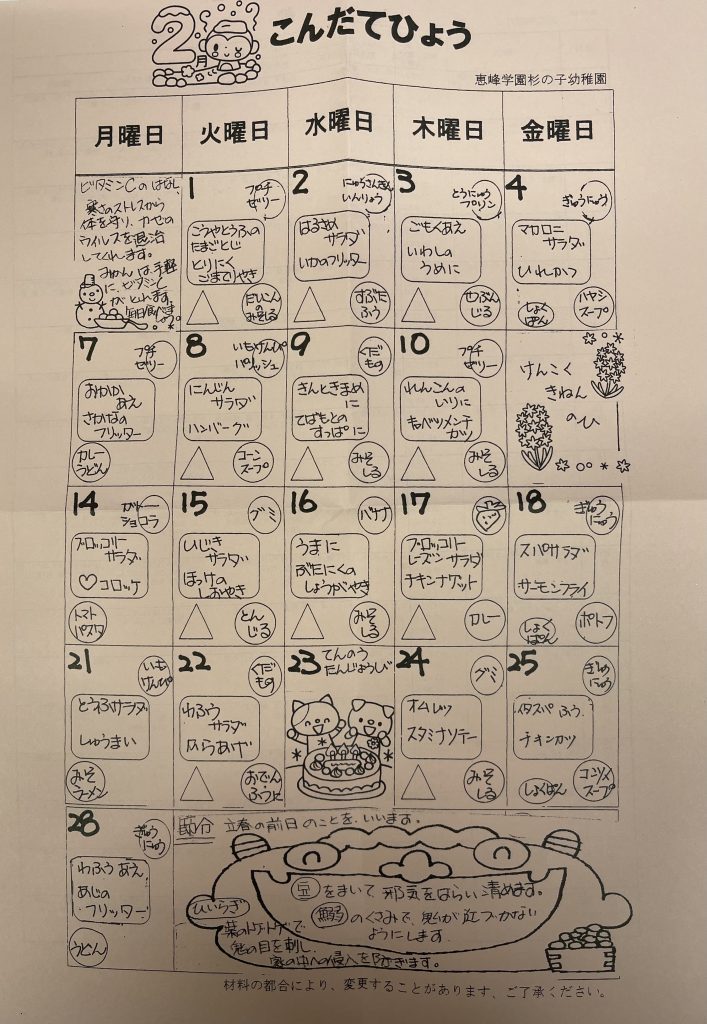 2月
こんだてひょう
恵峰学園杉の子幼稚園
月曜日 火曜日 水曜日 木曜日 金曜日
ビタミンCのはなし
寒さのストレスから
体を守り、カゼの
ウイルスを退治
してくれます。
みかんは手軽
に、ビタミンC
がとれます。
毎日食べましょう
1
プチ
ゼリー
こうやとうふの
たまごとじ
とりにく
ごまてりやき
だいこん
の
みそしる
2
にゅうさんきん
いんりょう
はるさめ
サラダ
いかのフリッター
すぶた
ふう
3
とうにゅう
プリン
ごもくあえ
いわしの
うめに
せつぶん
じる
4
ぎゅうにゅう
マカロニ
サラダ
ひれかつ
しょく
ぱん
ハヤシ
スープ
7
プチ
ゼリー
おかか
あえ
さかなの
フリッター
カレー
うどん
8
いもけんぴ
パリッシュ
にんじん
サラダ
ハンバーグ
コーン
スープ
9
くだ
もの
きんときまめ
に
てばもとの
すっぱに
みそ
しる
10
プチ
ゼリー
れんこんの
いりに
キャベツメンチ
カツ
みそ
しる
けんこく
きねん
のひ
14
ガトー
ショコラ
ブロッコリー
サラダ
♡コロッケ
トマト
パスタ
15
グミ
ひじき
サラダ
ほっけの
しおやき
とん
じる
16
バナナ
うまに
ぶたにくの
しょうがやき
みそ
しる
17
ブロッコリー
レーズンサラダ
チキンナゲット
カレー
18
ぎゅう
にゅう
スパサラダ
サーモンフライ
しょく
ぱん
ポトフ
21
いも
けんぴ
とうふサラダ
しゅうまい
みそ
ラーメン
22
くだ
もの
わふう
サラダ
からあげ
おでん
ふうに
23
てんのう
たんじょうび
24
グミ
オムレツ
スタミナソテー
みそ
しる
25
ぎゅう
にゅう
イタスパふう
チキンカツ
しょくぱん
コンソメ
スープ
28
ぎゅう
にゅう
わふうあえ
あじの
フリッター
うどん
節分 立春の前日のことをいいます。
豆をまいて、邪気をはらい清めます。
鰯のくさみで、鬼が近づかない
ようにします。
ひいらぎ
葉のトゲトゲで
鬼の目を刺し、
家の中への侵入を防ぎます。
材料の都合により、変更することがあります、ご了承ください。